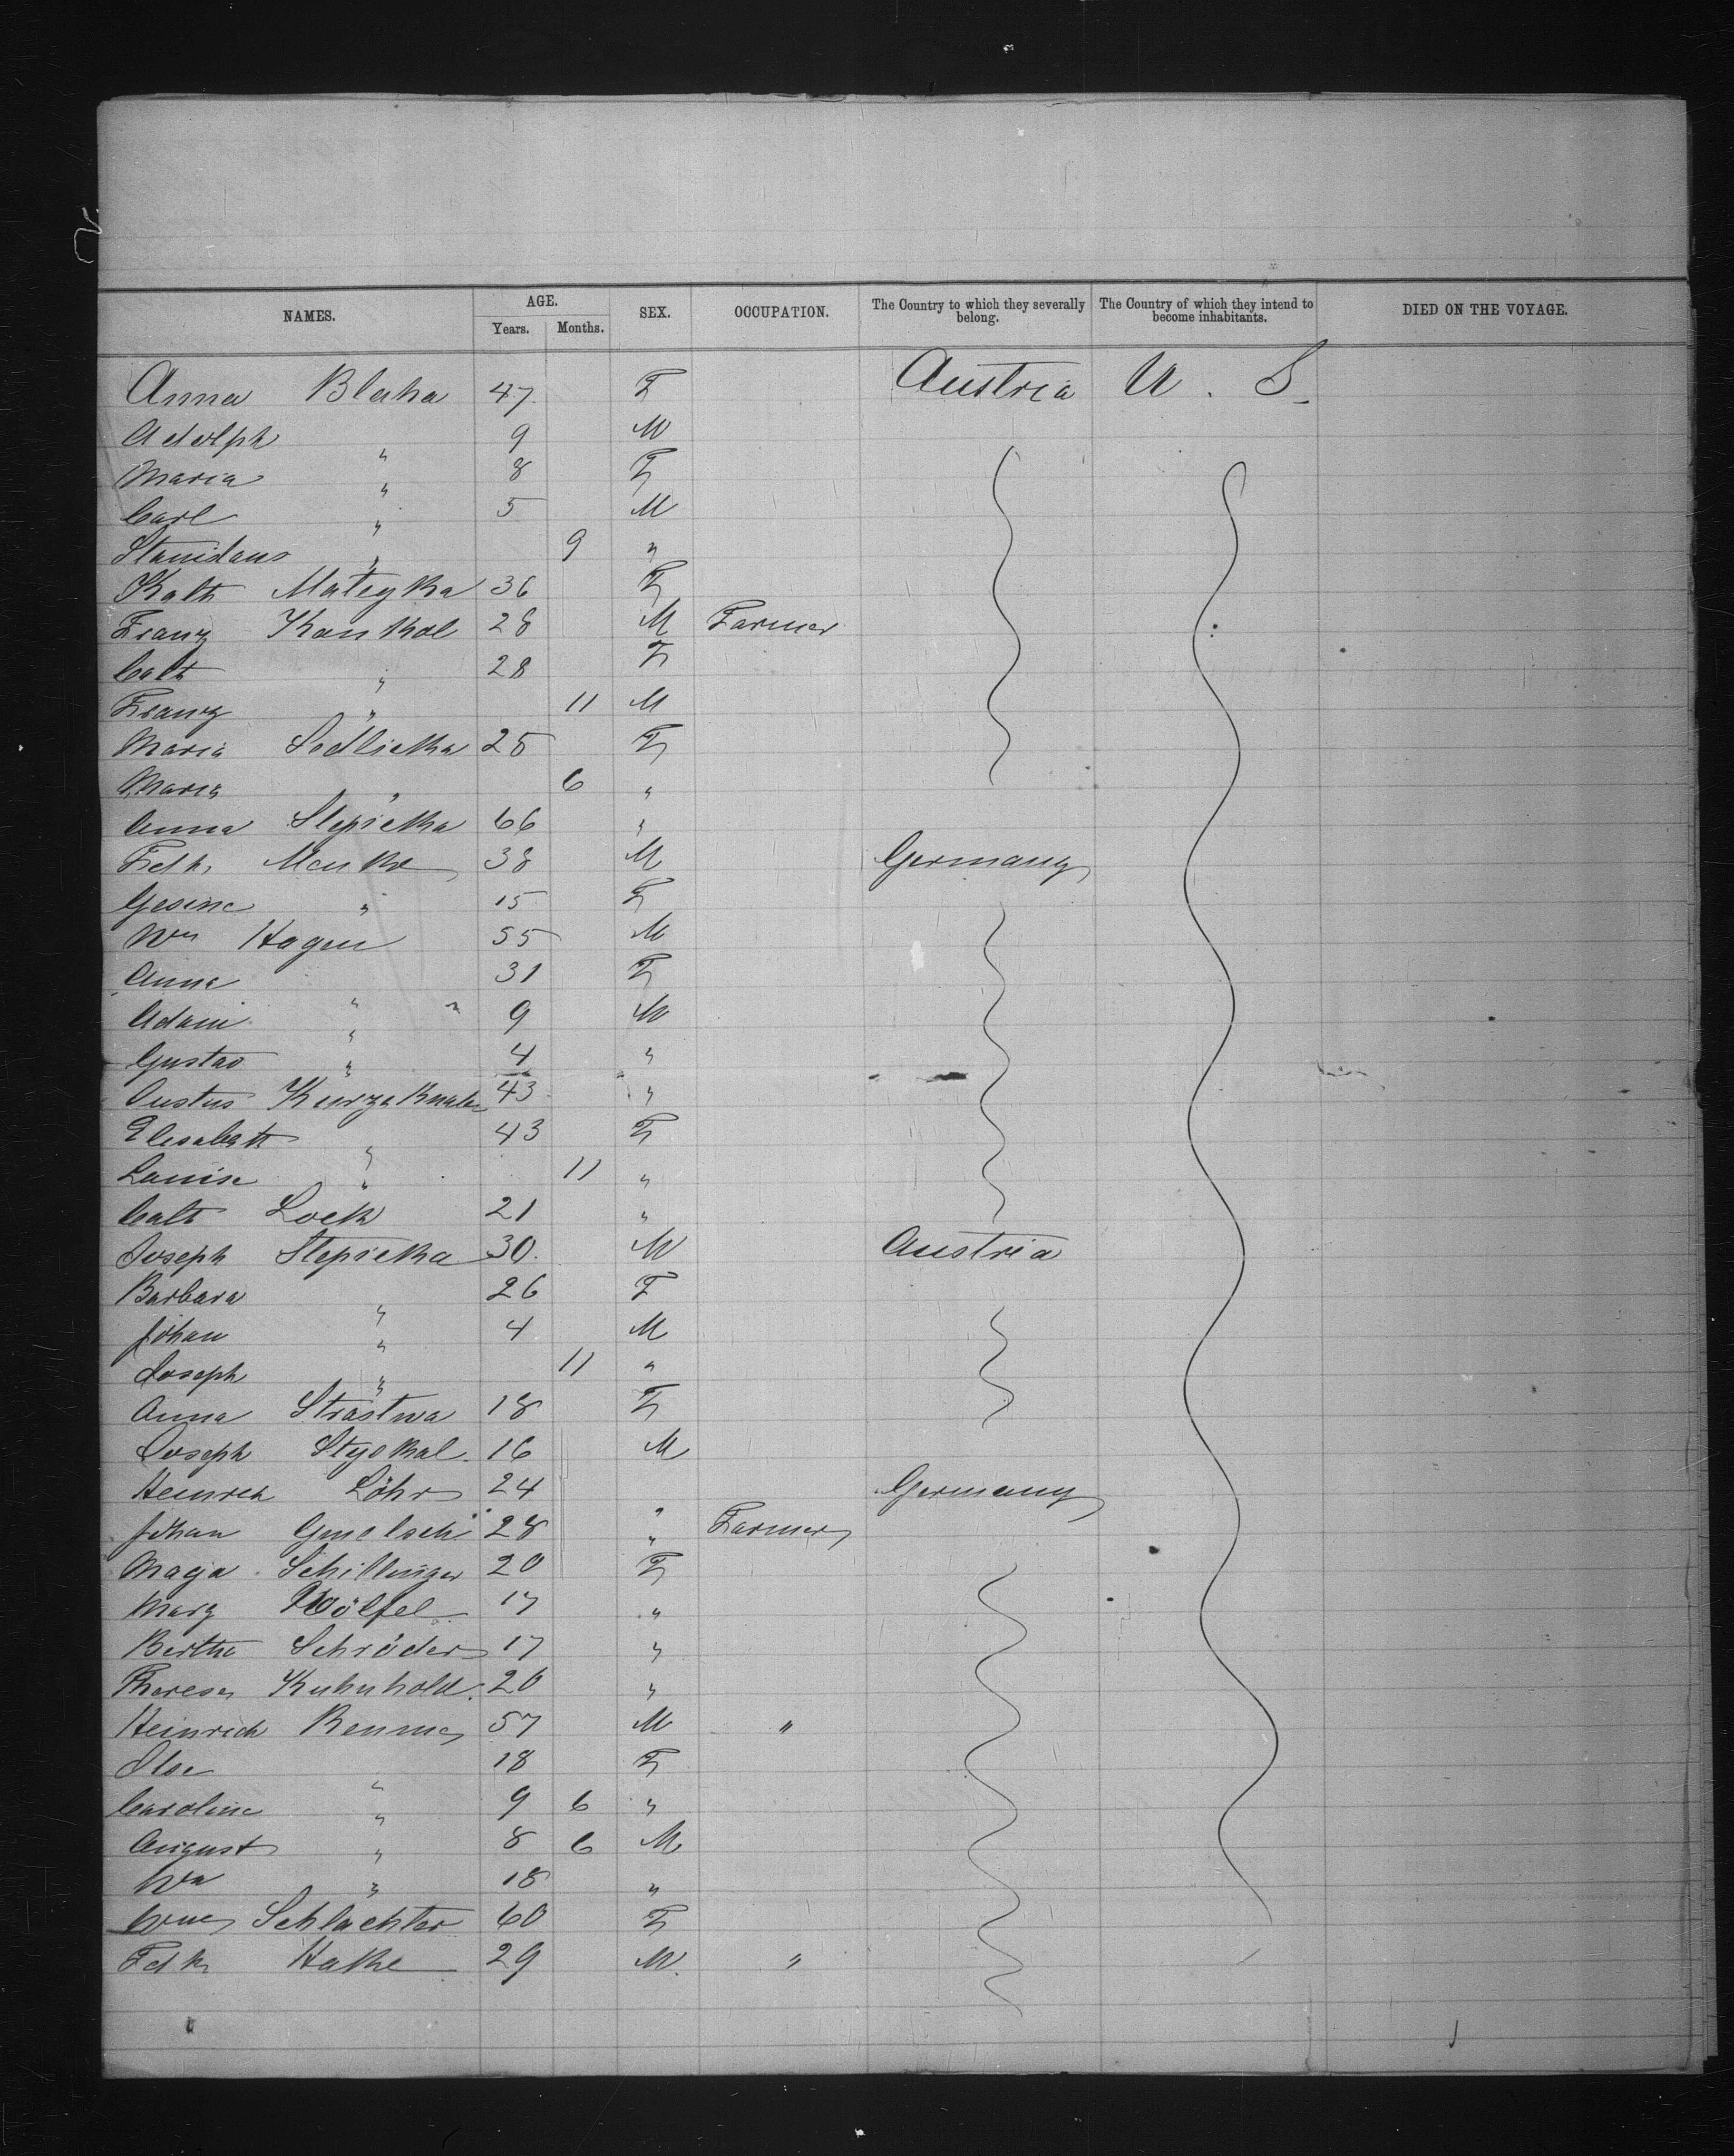 NAMES. AGE. Years. Months. SEX. OCCUPATION. The Country to which they severally belong. The Country of which they intend to become inhabitants. DIED ON THE VOYAGE.
Anna Blaha 47 F Austria U. S.
Adolph " 9 M
Maria " 8 F
Carl " 5 M
Stanislaus " 9 "
Kath Mateyka 36 F
Franz Konkol 28 M Farmer
Cath " 28 F
Franz " 11 M
Maria Sedlicka 25 F
Maria " 6 "
Anna Slepicka 66 "
Fedk Menke 38 M Germany
Gesine " 15 F
Wm Hagen 55 M
Anna " 31 F
Adam " 9 M
Gustav " 4 "
Justus 43 "
Elisabeth " 43 F
Louise " 11 "
Cath Lock 21 "
Joseph Slepicka 30 M Austria
Barbara " 26 F
Johan " 4 M
Joseph " 11 "
Anna Strastwa 18 F
Joseph 16 M
Heinrich Löhr 24 " Germany
Johan 28 " Farmer
Schillinger 20 F
Marg Wölfel 17 "
Bertha Schröder 17 "
Theresa Kuhnhold 20 "
Heinrich Benme 57 M "
18 F
Caroline " 9 6 "
August " 8 6 M
Wm " 18 "
Schlachter 60 F
Fdk Hake 29 M "